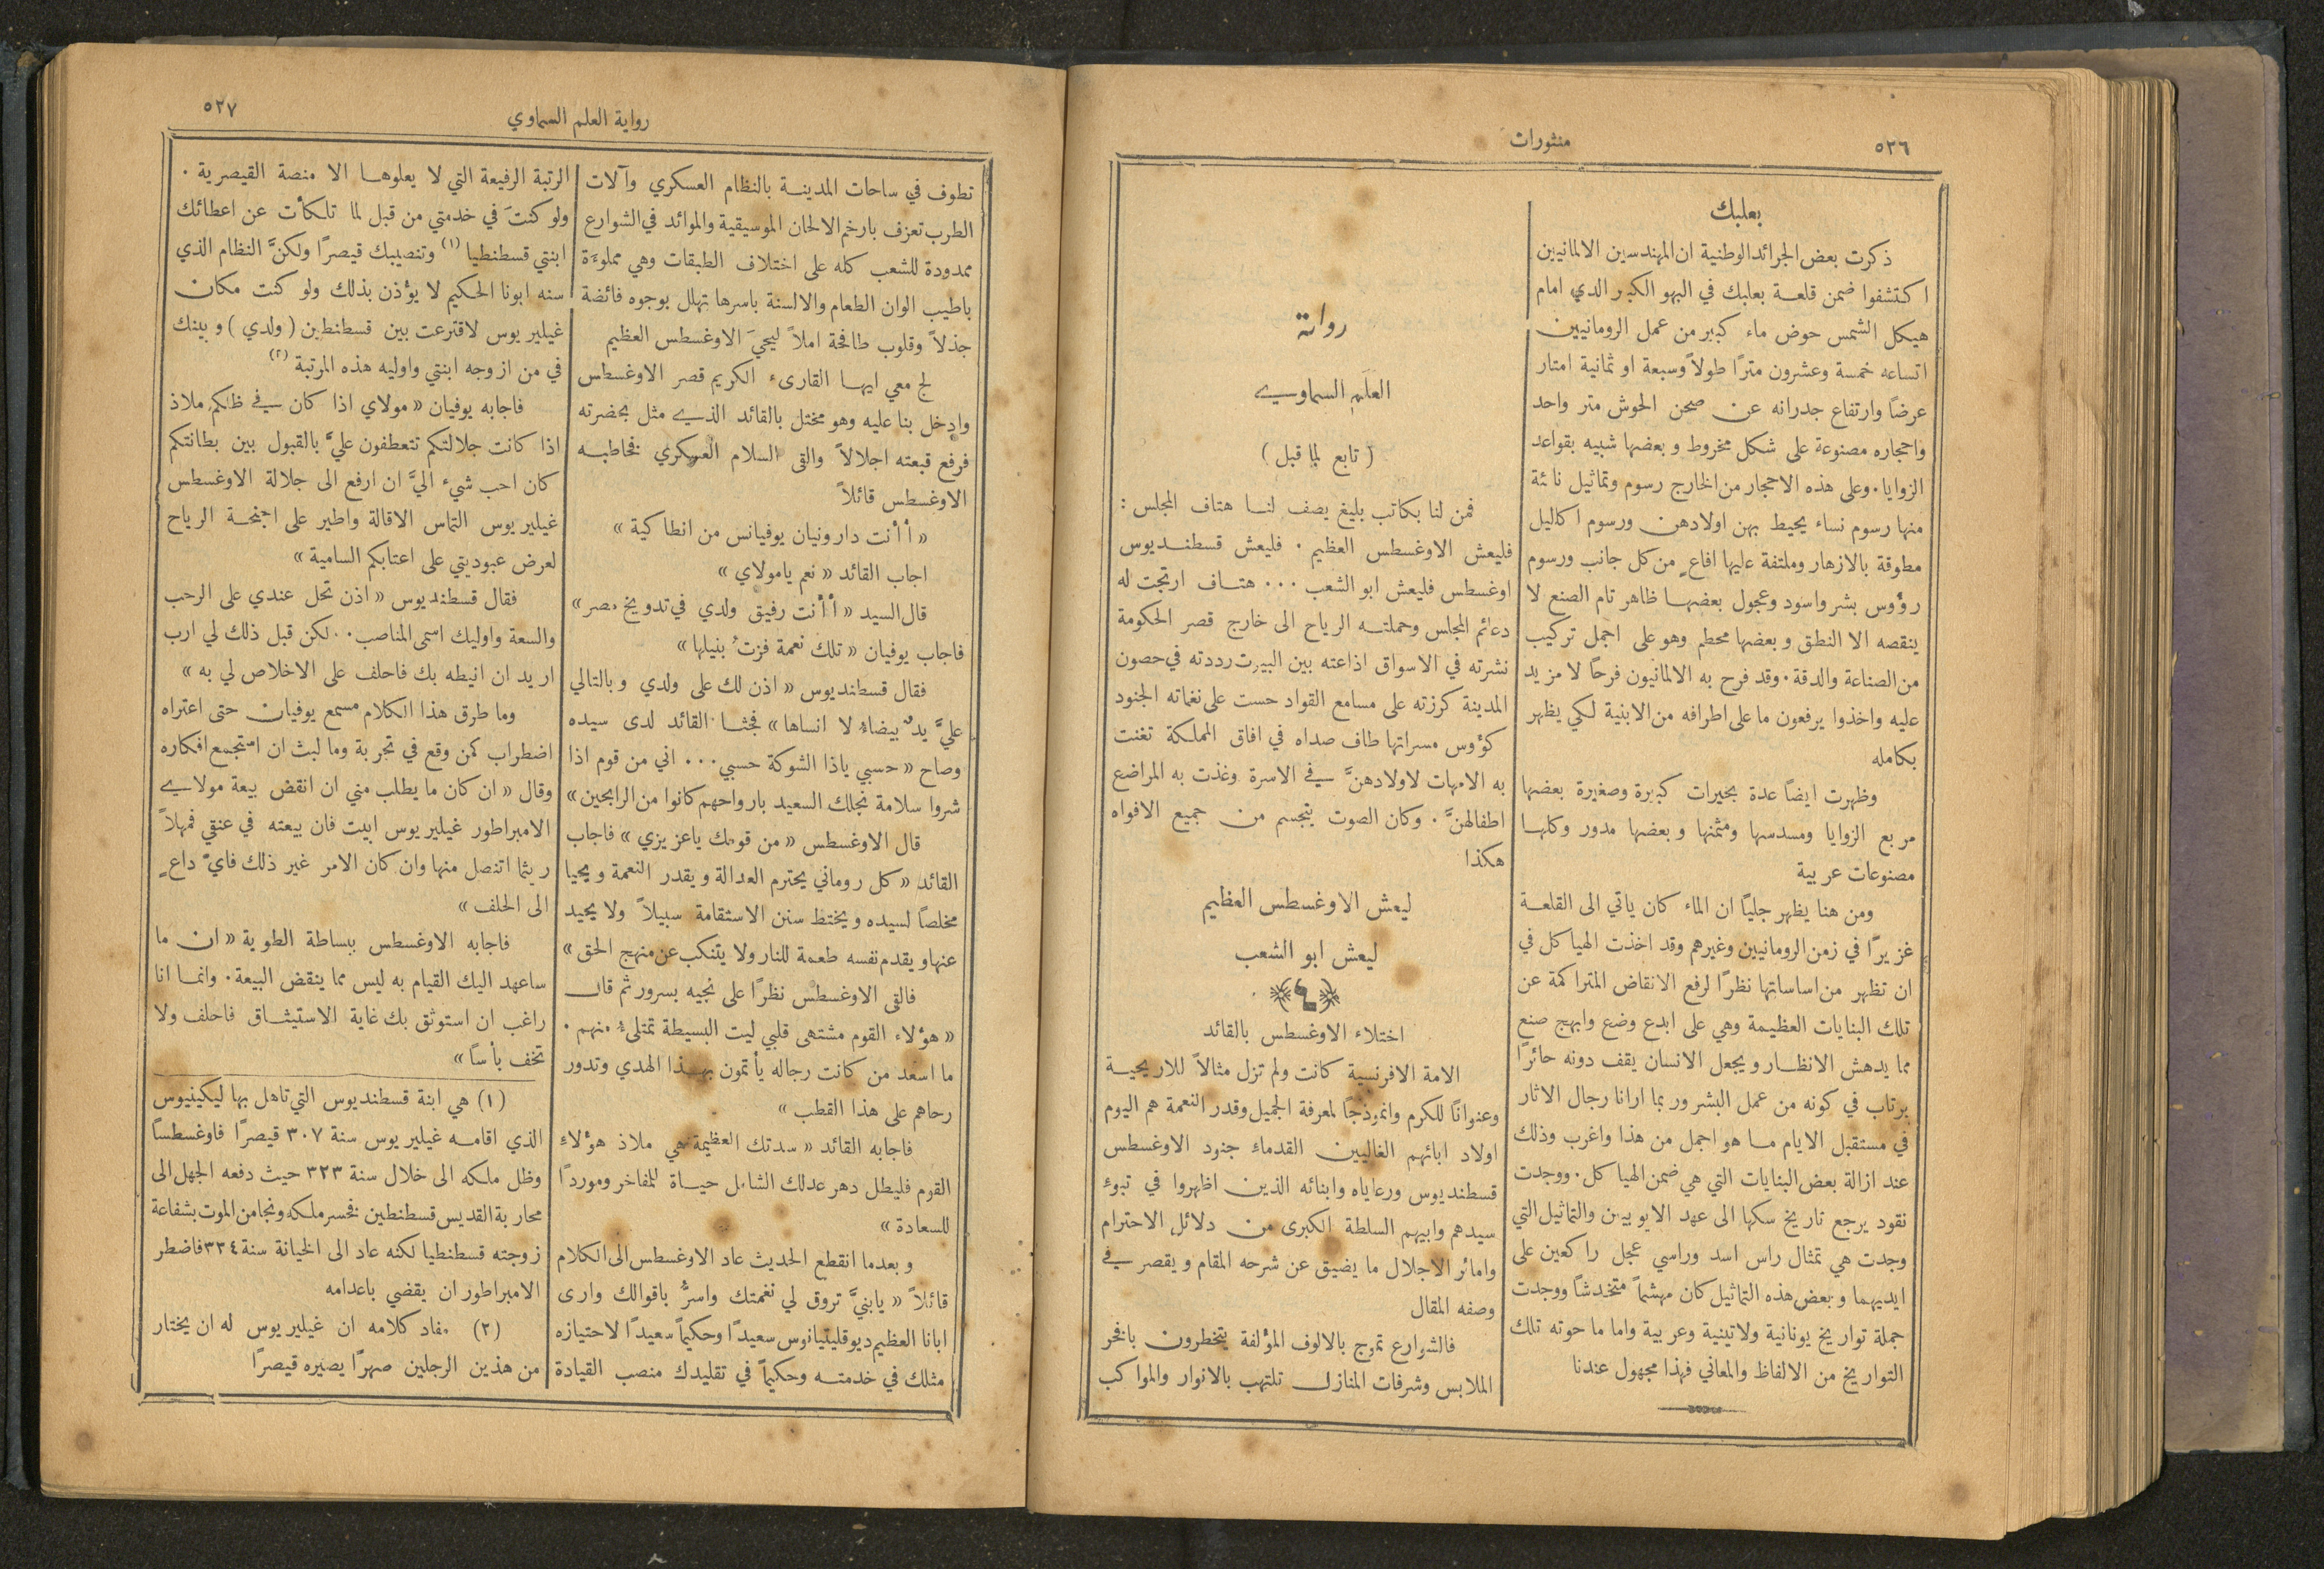 ٥٣٦
منثورات
بعلبك
ذكرت بعض الجرائد الوطنية ان المهندسين الالمانيين
اكتشفوا ضمن قلعة بعلبك في البهو الكبير الذي امام
هيكل الشمس حوض ماء كبير من عمل الرومانيين
اتساعه خمسة وعشرون مترًا طولاً وسبعة او ثمانية امتار
عرضًا وارتفاع جدرانه عن صحن الحوش متر واحد
واحجاره مصنوعة على شكل مخروط وبعضها شبيه بقواعد
الزوايا. وعلى هذه الاحجار من الخارج رسوم وتماثيل نائة
منها رسوم نساء يحيط بهن اولادهن ورسوم اكاليل
مطوقة بالازهار وملتفة عليها افاعٍ من كل جانب ورسوم
رؤوس بشر واسود وعجول بعضها ظاهر تام الصنع لا
ينقصه الا النطق وبعضها محطم وهو على اجمل تركيب
من الصناعة والدقة. وقد فرح به الالمانيون فرحًا لا مزيد
عليه واخذوا يرفعون ما على اطرافه من الابنية لكي يظهر
بكامله
وظهرت ايضًا عدة بحيرات كبيرة وصغيرة بعضها
مربع الزوايا ومسدسها ومثمنها وبعضها مدور وكلها
مصنوعات عربية
ومن هنا يظهر جليًا ان الماء كان ياتي الى القلعة
غزيرًا في زمن الرومانيين وغيرهم وقد اخذت الهياكل في
ان تظهر من اساساتها نظرًا لرفع الانقاض المتراكمة عن
تلك البنايات العظيمة وهي على ابدع وضع وابهج صنع
مما يدهش الانظار ويجعل الانسان يقف دونه حائرًا
يرتاب في كونه من عمل البشر وربما ارانا رجال الاثار
في مستقبل الايام ما هو اجمل من هذا واغرب وذلك
عند ازالة بعض البنايات التي هي ضمن الهياكل. ووجدت
نقود يرجع تاريخ سكها الى عهد الايوبيين والتماثيل التي
وجدت هي تمثال راس اسد وراسي عجل راكعين على
ايديهما وبعض هذه التماثيل كان مهشمًا متخدشًا ووجدت
جملة تواريخ يونانية ولاتينية وعربية واما ما حوته تلك
التواريخ من الالفاظ والمعاني فهذا مجهول عندنا
رواية
العلَمِ السماوي
(تابع لما قبل)
فمن لنا بكاتب بليغ يصف لنا هتاف المجلس :
فليعش الاوغسطس العظيم . فليعش قسطنديوس
اوغسطس فليعش ابو الشعب ... هتاف ارتجت له
دعائم المجلس وحملته الرياح الى خارج قصر الحكومة
نشرته في الاسواق اذاعته بين البيوت رددته في حصون
المدينة كرزته على مسامع القواد حست على نغماته الجنود
كؤوس مسراتها طاف صداه في افاق المملكة تغنت
به الامهات لاولادهنَّ في الاسرة وغذت به المراضع
اطفالهنَّ . وكان الصوت يتجسم من جميع الافواه
هكذا
ليعش الاوغسطس العظيم
ليعش ابو الشعب
﴿٤﴾
اختلاء الاوغسطس بالقائد
الامة الافرنسية كانت ولم تزل مثالاً للاريحية
وعنوانًا للكرم وانموذجًا لمعرفة الجميل وقدر النعمة هم اليوم
اولاد ابائهم الغاليين القدماء جنود الاوغسطس
قسطنديوس ورعاياه وابنائه الذين اظهروا في تبوء
سيدهم وابيهم السلطة الكبرى من دلائل الاحترام
وامائر الاجلال ما يضيق عن شرحه المقام ويقصر في
وصفه المقال
فالشوارع تموج بالالوف المؤلفة يتخطرون بافخر
الملابس وشرفات المنازل تلتهب بالانوار والمواكب
رواية العلم السماوي
٥٢٧
تطوف في ساحات المدينة بالنظام العسكري وآلات
الطرب تعزف بارخم الالحان الموسيقية والموائد في الشوارع
ممدودة للشعب كله على اختلاف الطبقات وهي مملوءة
باطيب الوان الطعام والالسنة باسرها تهلل بوجوه فائضة
جذلاً وقلوب طافحة املاً ليحيَ الاوغسطس العظيم
لج معي ايها القارىء الكريم قصر الاوغسطس
وادخل بنا عليه وهو مختل بالقائد الذي مثل بحضرته
فرفع قبعته اجلالاً والقى السلام العسكري فخاطبه
الاوغسطس قائلاً
« أأنت دارونيان يوفيانس من انطاكية »
اجاب القائد « نعم يامولاي »
قال السيد « أأنت رفيق ولدي في تدويخ مصر »
فاجاب يوفيان « تلك نعمة فزتُ بنيلها »
فقال قسطنديوس « اذن لك على ولدي وبالتالي
عليَّ يدٌ بيضاء لا انساها » فجثا القائد لدى سيده
وصاح « حسبي ياذا الشوكة حسبي ... اني من قوم اذا
شروا سلامة نجلك السعيد بارواحهم كانوا من الرابحين »
قال الاوغسطس « من قومك ياعزيزي » فاجاب
القائد « كل روماني يحترم العدالة ويقدر النعمة ويحيا
مخلصًا لسيده ويختط سنن الاستقامة سبيلاً ولا يحيد
عنها ويقدم نفسه طعمة للنار ولا يتنكب عن منهج الحق »
فالقى الاوغسطس نظرًا على نجيه بسرور ثم قال
« هؤلاء القوم مشتهى قلبي ليت البسيطة تمتلىءُ منهم .
ما اسعد من كانت رجاله يأتمون بهذا الهدي وتدور
رحاهم على هذا القطب »
فاجابه القائد « سدتك العظيمة هي ملاذ هؤلاء
القوم فليطل دهر عدلك الشامل حياة للمفاخر وموردًا
للسعادة »
وبعدما انقطع الحديث عاد الاوغسطس الى الكلام
قائلاً « يابنيَّ تروق لي نغمتك واسرُّ باقوالك وارى
ابانا العظيم ديوقليتيانوس سعيدًا وحكيمًا سعيدًا لاحتيازه
مثلك في خدمته وحكيمًا في تقليدك منصب القيادة
الرتبة الرفيعة التي لا يعلوها الا منصة القيصرية .
ولو كنتَ في خدمتي من قبل لما تلكأت عن اعطائك
ابنتي قسطنطيا (١) وتنصيبك قيصرًا ولكنَّ النظام الذي
سنه ابونا الحكيم لا يؤذن بذلك ولو كنت مكان
غيليريوس لاقترعت بين قسطنطين (ولدي) وبينك
في من ازوجه ابنتي واوليه هذه المرتبة (٢)
فاجابه يوفيان « مولاي اذا كان في ظلكم ملاذ
اذا كانت جلالتكم تتعطفون عليَّ بالقبول بين بطانتكم
كان احب شيء اليَّ ان ارفع الى جلالة الاوغسطس
غيليريوس التماس الاقالة واطير على اجنحة الرياح
لعرض عبوديتي على اعتابكم السامية »
فقال قسطنديوس « اذن تحل عندي على الرحب
والسعة واوليك اسمى المناصب.. لكن قبل ذلك لي ارب
اريد ان انيطه بك فاحلف على الاخلاص لي به »
وما طرق هذا الكلام مسمع يوفيان حتى اعتراه
اضطراب كمن وقع في تجربة وما لبث ان استجمع افكاره
وقال « ان كان ما يطلب مني ان انقض بيعة مولاي
الامبراطور غيليريوس ابيت فان بيعته في عنقي فمهلاً
ريثما اتنصل منها وان كان الامر غير ذلك فايّ داعٍ
الى الحلف »
فاجابه الاوغسطس ببساطة الطوية « ان ما
ساعهد اليك القيام به ليس مما ينقض البيعة . وانما انا
راغب ان استوثق بك غاية الاستيثاق فاحلف ولا
تخف بأسًا »
(١) هي ابنة قسطنديوس التي تاهل بها ليكينيوس
الذي اقامه غيليريوس سنة ٣٠٧ قيصرًا فاوغسطسًا
وظل ملكه الى خلال سنة ٣٢٣ حيث دفعه الجهل الى
محاربة القديس قسطنطين فخسر ملكه ونجا من الموت بشفاعة
زوجته قسطنطيا لكنه عاد الى الخيانة سنة ٣٢٤ فاضطر
الامبراطور ان يقضي باعدامه
(٢) مفاد كلامه ان غيليريوس له ان يختار
من هذين الرجلين صهرًا يصيره قيصرًا